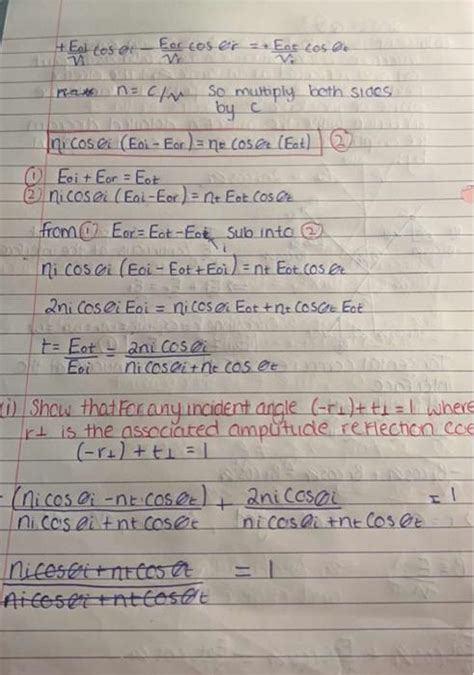 + Eoi/Vi cos θi − Eor/Vr cos θr = + Eot/Vt cos θt
n = c/v so multiply both sides
by c
ni cos θi (Eoi − Eor) = nt cos θt (Eot) ②
① Eoi + Eor = Eot
② ni cos θi (Eoi − Eor) = nt Eot cos θt
from ① Eor = Eot − Eoi sub into ②
ni cos θi (Eoi − Eot + Eoi) = nt Eot cos θt
2ni cos θi Eoi = ni cos θi Eot + nt cos θt Eot
t = Eot/Eoi = 2ni cos θi / ni cos θi + nt cos θt
(i) Show that for any incident angle (-r⊥) + t⊥ = 1 where
r⊥ is the associated amplitude reflection coe
(-r⊥) + t⊥ = 1
− (ni cos θi − nt cos θt) / ni cos θi + nt cos θt + 2ni cos θi / ni cos θi + nt cos θt = 1
ni cos θi + nt cos θt / ni cos θi + nt cos θt = 1